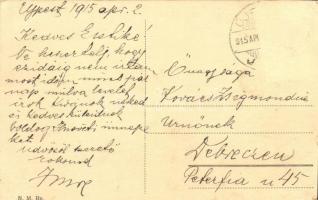 Ujpest 1915 apr. 2.
Kedves Esztike!
Ne keseredj, hogy
ezidáig nem írtam
most idején mivel pár
nap múlva levelet
írok. Kivánok néked
és kedves szüleidnek
boldog húsvéti ünnepe-
ket!
üdvözöl szerető
rokonod
Imre
Őnagysága
Kovács Zsigmondné
Urnőnek
Debreczen
Péterfia u 45
915 APR
N. M. Bp.